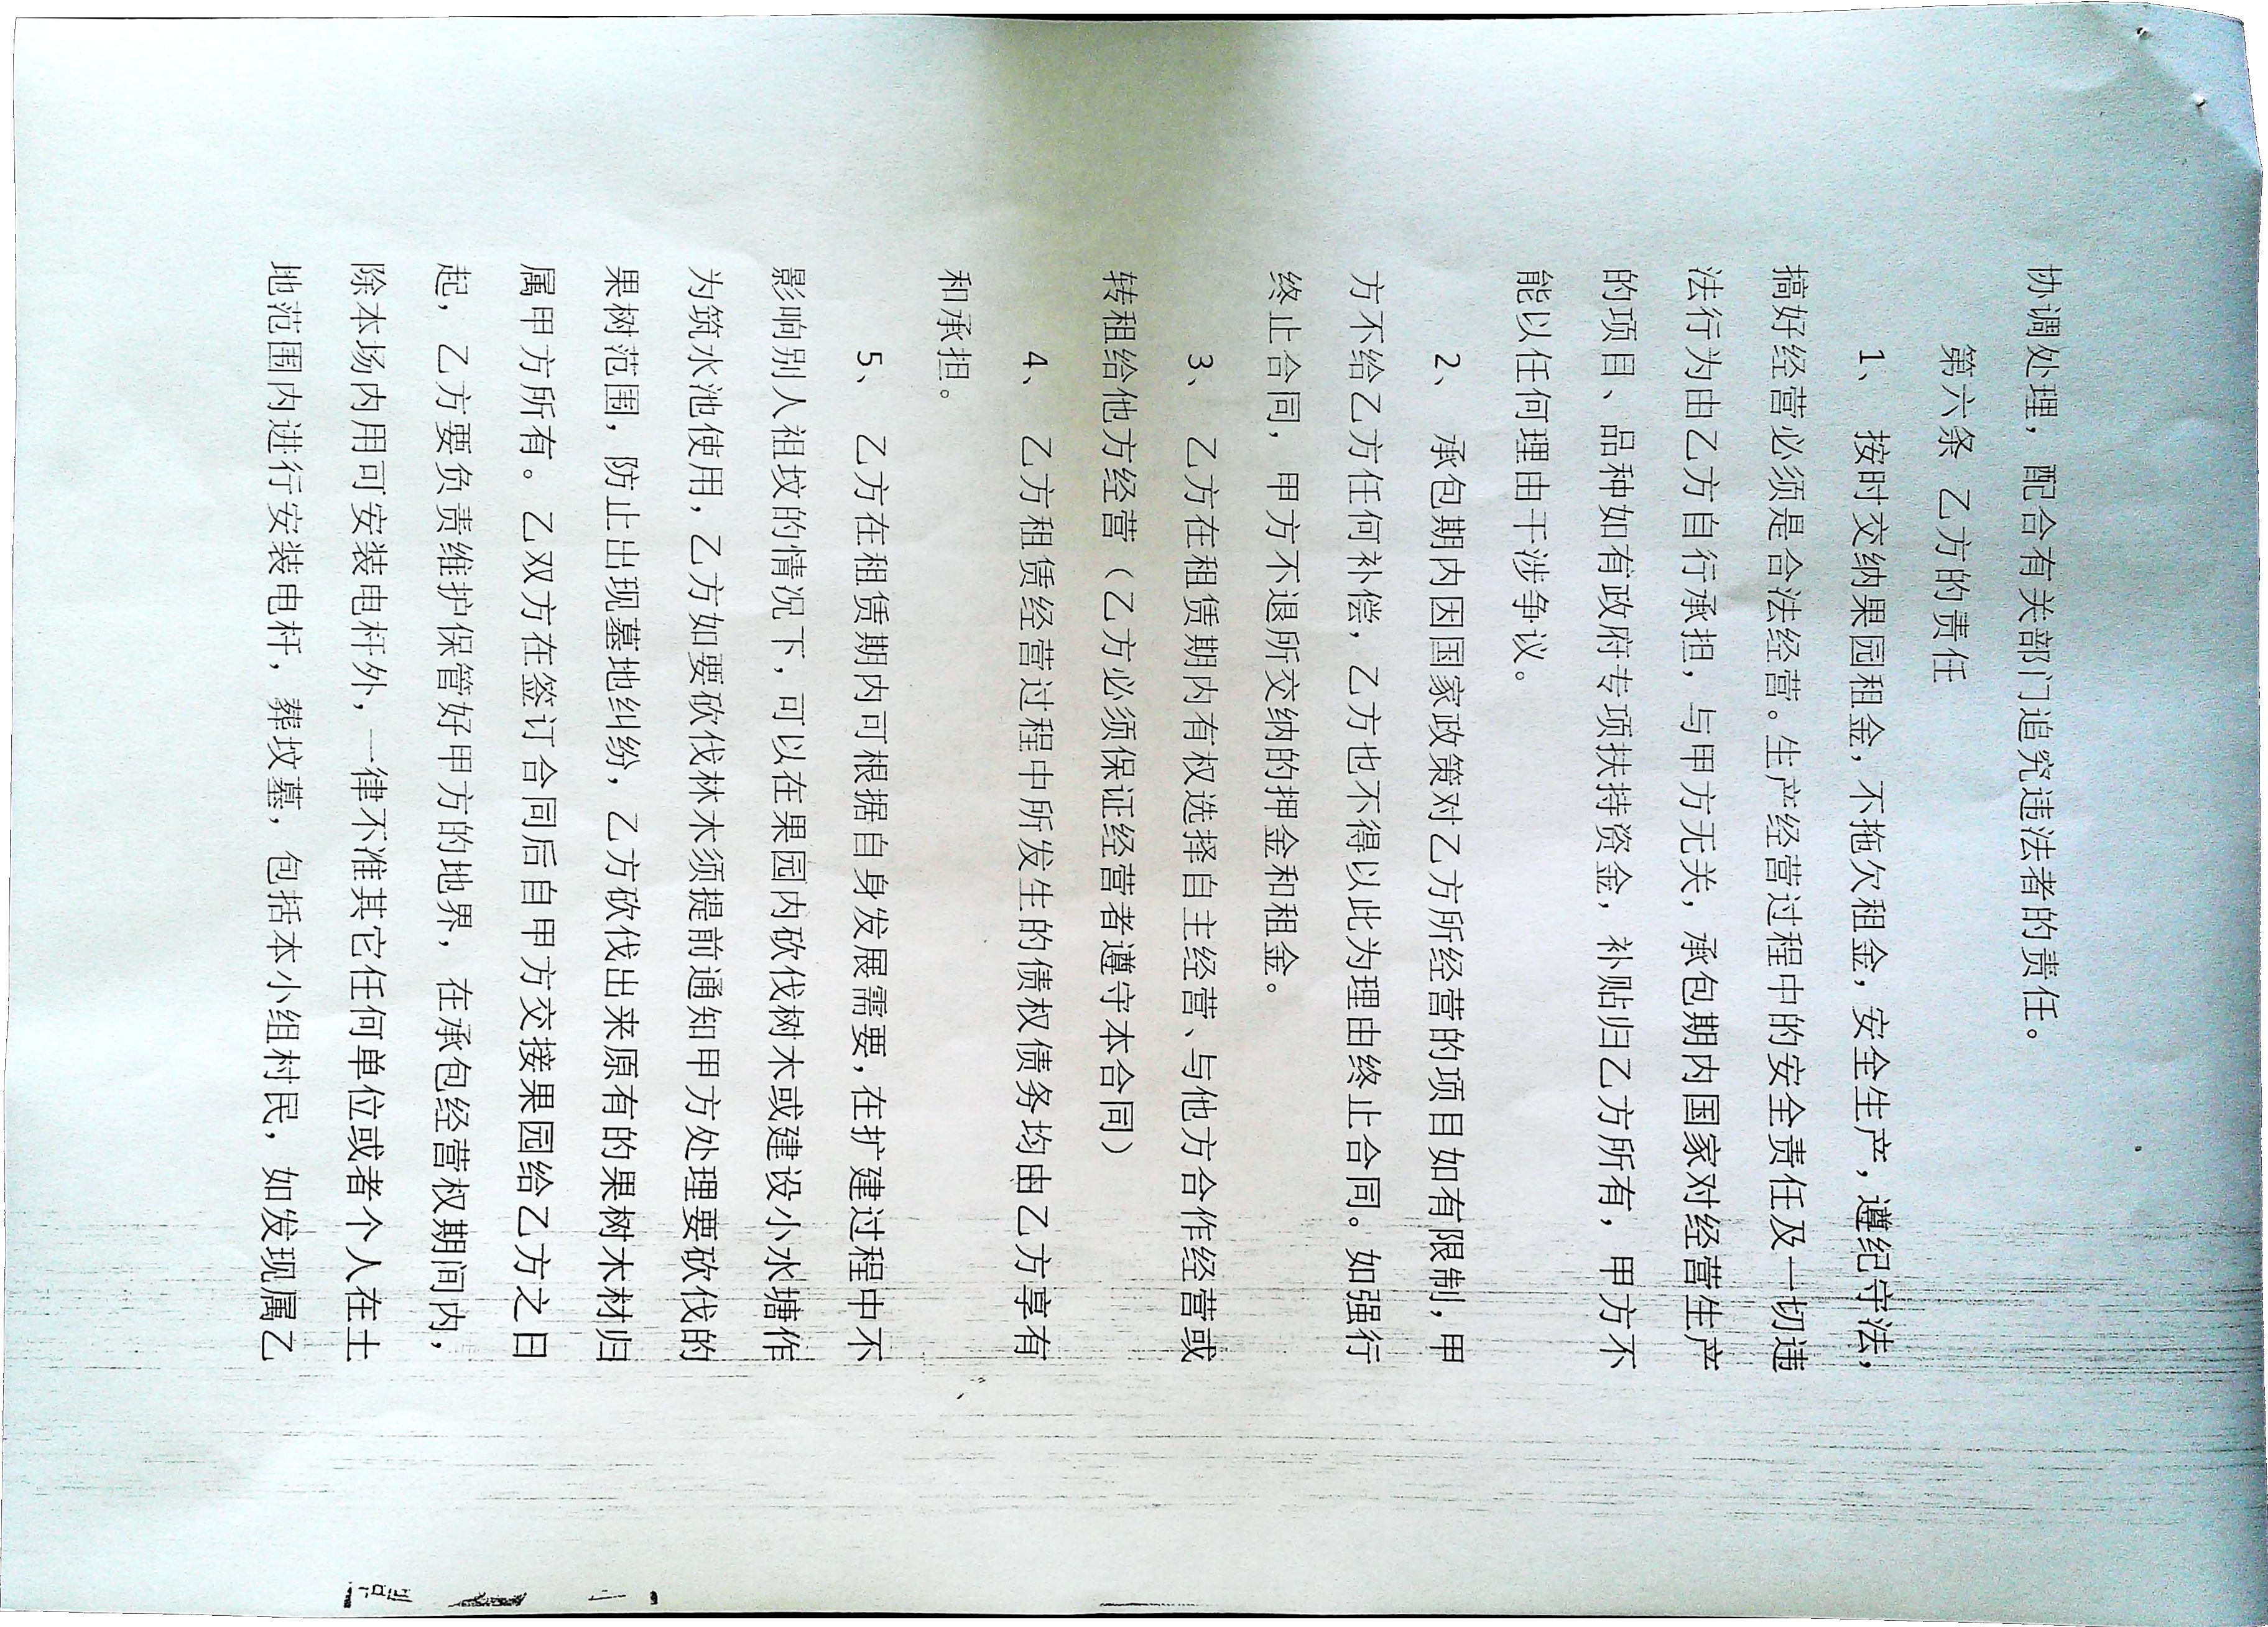 协调处理，配合有关部门追究违法者的责任。
第六条 乙方的责任
1、 按时交纳果园租金，不拖欠租金，安全生产，遵纪守法，
搞好经营必须是合法经营。生产经营过程中的安全责任及一切违
法行为由乙方自行承担，与甲方无关，承包期内国家对经营生产
的项目、品种如有政府专项扶持资金，补贴归乙方所有，甲方不
能以任何理由干涉争议。
2、 承包期内因国家政策对乙方所经营的项目如有限制，甲
方不给乙方任何补偿，乙方也不得以此为理由终止合同。如强行
终止合同，甲方不退所交纳的押金和租金。
3、 乙方在租赁期内有权选择自主经营、与他方合作经营或
转租给他方经营（乙方必须保证经营者遵守本合同）
4、 乙方租赁经营过程中所发生的债权债务均由乙方享有
和承担。
5、 乙方在租赁期内可根据自身发展需要，在扩建过程中不
影响别人祖坟的情况下，可以在果园内砍伐树木或建设小水塘作
为筑水池使用，乙方如要砍伐林木须提前通知甲方处理要砍伐的
果树范围，防止出现墓地纠纷，乙方砍伐出来原有的果树木材归
属甲方所有。乙双方在签订合同后自甲方交接果园给乙方之日
起，乙方要负责维护保管好甲方的地界，在承包经营权期间内，
除本场内用可安装电杆外，一律不准其它任何单位或者个人在土
地范围内进行安装电杆，葬坟墓，包括本小组村民，如发现属乙